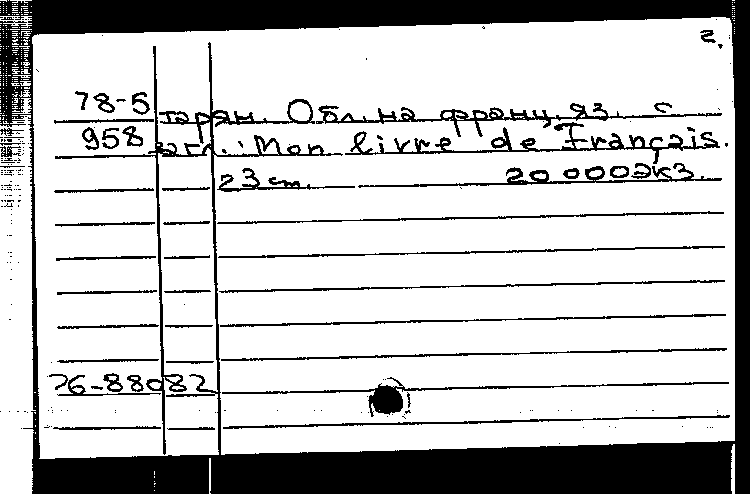 2.
78-5 тарян. Обл. на франц. яз. с
958 загл.: Mon livre de Français.
23 cm. 20 000 экз.
76-88082